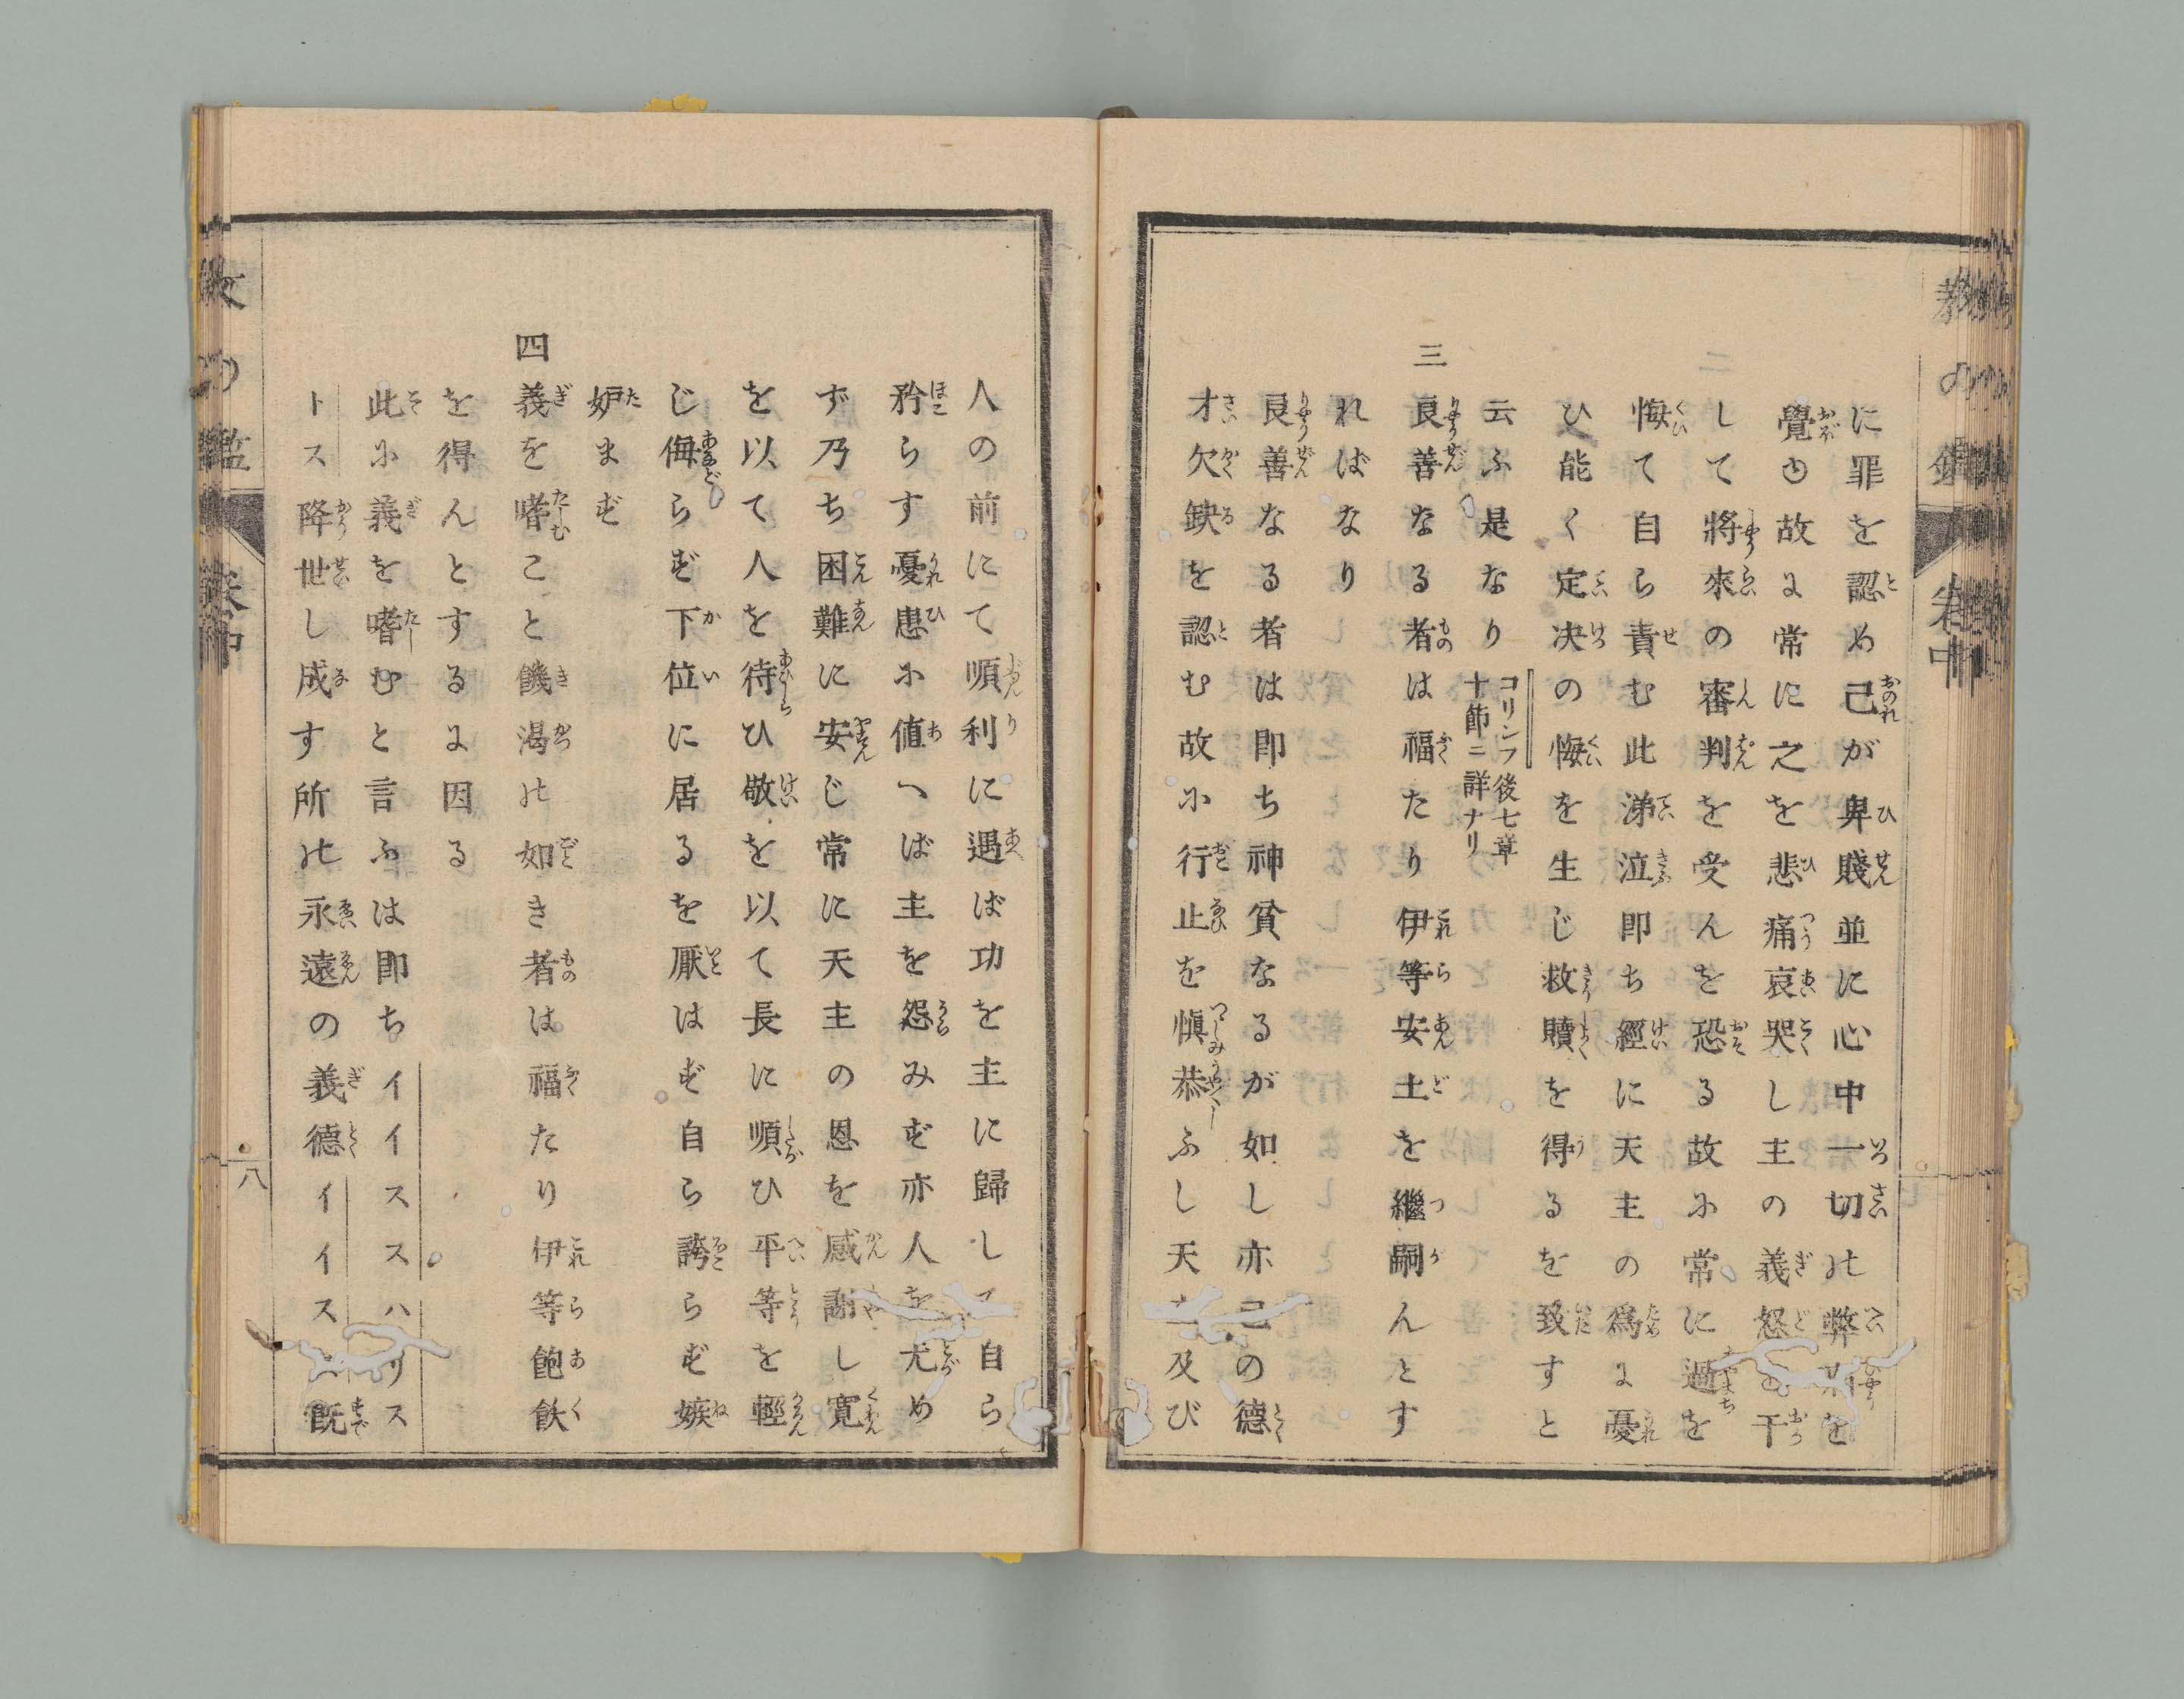 に罪を認め己が卑賤並に心中一切の弊を
覺ゆ故に常に之を悲痛哀哭し主の義怒干
して將來の審判を受んを恐る故に常に過を
悔て自ら責む此涕泣即ち經に天主の爲に憂
ひ能く定决の悔を生じ救贖を得るを致すと
云ふ是なり コリンフ後七章
十節ニ詳ナリ
三
良善なる者は福たり伊等安土を継嗣んとす
ればなり
良善なる者は即ち神貧なるが如し亦己の德
才欠缺を認む故に行止を愼恭ふし天主及び
人の前にて順利に遇ば功を主に歸して自ら
矜らす憂患に値へば主を怨みず亦人を尤め
ず乃ち困難に安じ常に天主の恩を感謝し寛
を以て人を待ひ敬を以て長に順ひ平等を輕
じ侮らず下位に居るを厭はず自ら誇らず嫉
妒まず
四
義を嗜こと饑渇の如き者は福たり伊等飽飫
を得んとするに因る
此に義を嗜むと言ふは即ちイイススハリス
トス降世し成す所の永遠の義德イイスス既
八